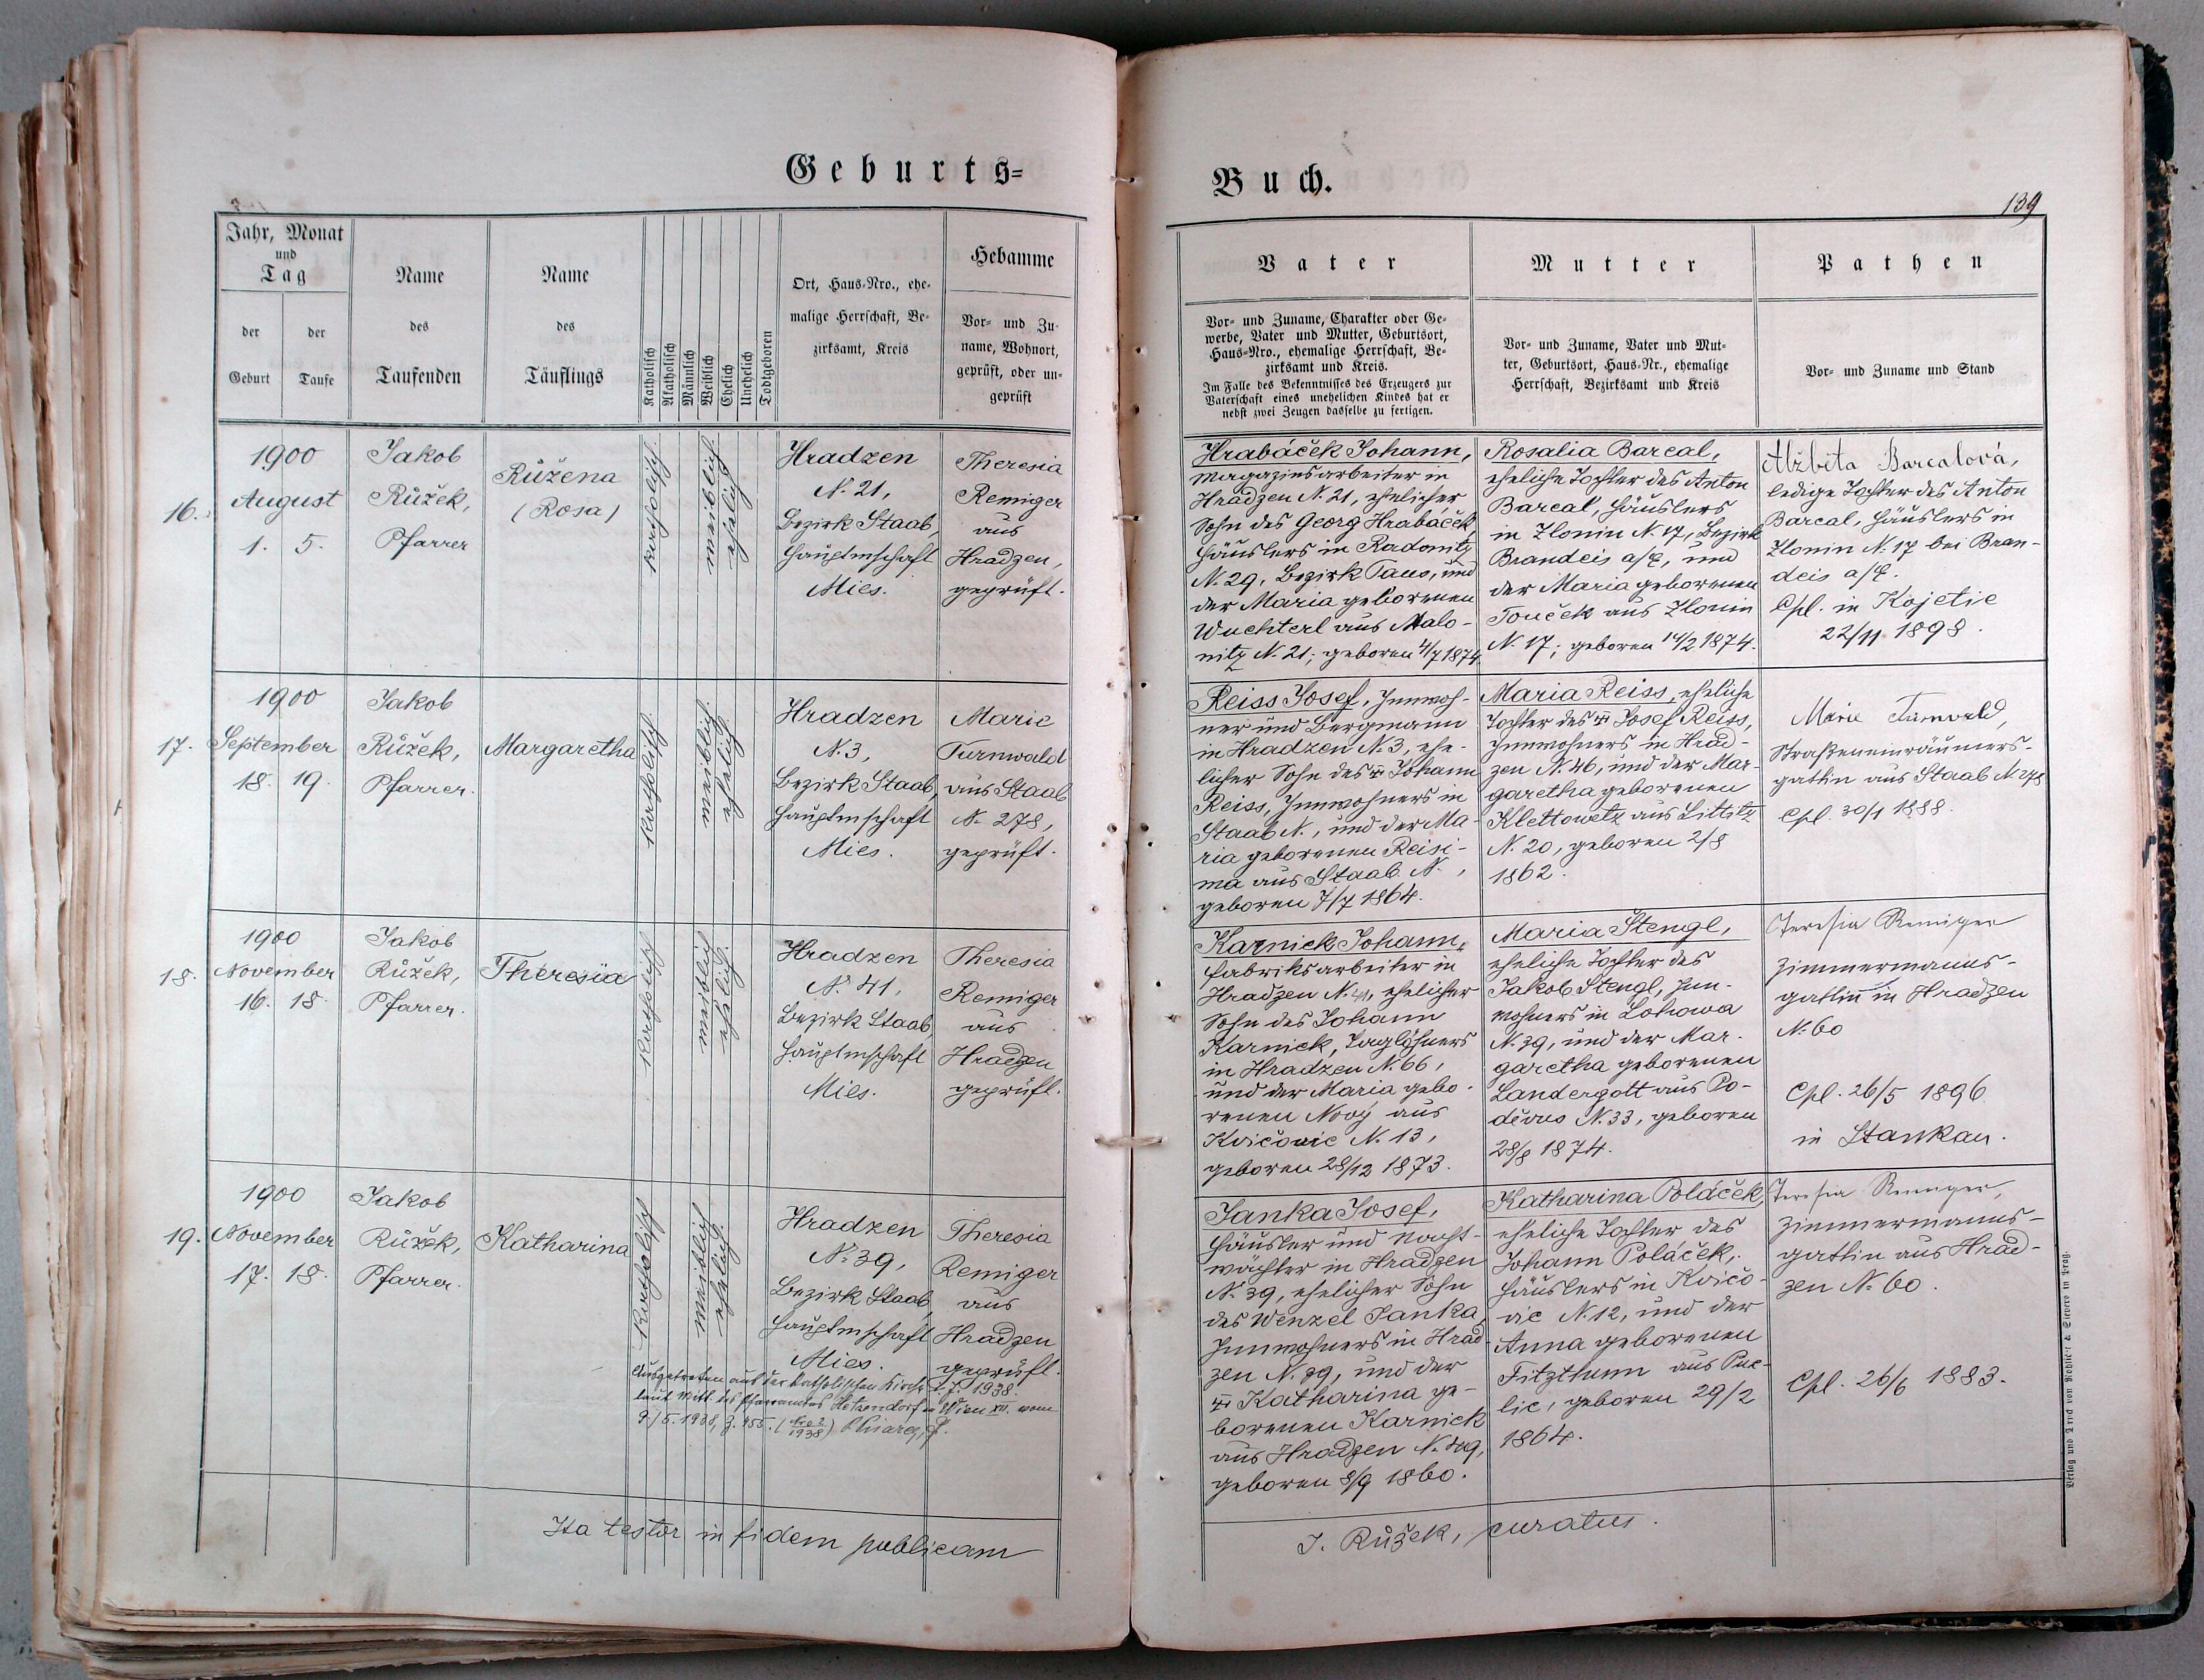 Geburts=
Jahr, Monat
und
Tag
der
Geburt
der
Taufe
Name
des
Taufenden
Name
des
Täuflings
Katholisch
Akatholisch
Männlich
Weiblich
Ehelich
Unehelich
Todtgeboren
Ort, Haus-Nro., ehe-
malige Herrschaft, Be-
zirksamt, Kreis
Hebamme
Vor- und Zu-
name, Wohnort,
geprüft, oder un-
geprüft
16.
1900
August
1. 5.
Jakob
Růžek,
Pfarrer
Růžena
(Rosa)
katholisch.
weiblich.
ehelich.
Hradzen
N. 21,
Bezirk Staab,
Hauptmschaft
Mies.
Theresia
Remiger
aus
Hradzen,
geprüft.
17.
1900
September
18. 19.
Jakob
Růžek,
Pfarrer.
Margaretha
katholisch.
weiblich.
ehelich.
Hradzen
N. 3,
Bezirk Staab,
Hauptmschaft
Mies.
Marie
Turnwald
aus Staab
N. 278,
geprüft.
18.
1900
November
16. 18.
Jakob
Růžek,
Pfarrer.
Theresia
katholisch
weiblich
ehelich.
Hradzen
N. 41,
Bezirk Staab,
Hauptmschaft
Mies.
Theresia
Remiger
aus
Hradzen
geprüft.
19.
1900
November
17. 18.
Jakob
Růžek,
Pfarrer.
Katharina
katholisch
weiblich
ehelich.
Hradzen
N. 39,
Bezirk Staab,
Hauptmschaft
Mies.
Theresia
Remiger
aus
Hradzen
geprüft.
Ausgetreten aus der katholischen Kirche 1938.
laut Mitt. des Pfarramtes Hetzendorf in Wien XII. vom
9./5. 1938, Z. 455.
Ita testor in fidem publicam
Buch.
139
Vater
Vor- und Zuname, Charakter oder Ge-
werbe, Vater und Mutter, Geburtsort,
Haus-Nro., ehemalige Herrschaft, Be-
zirksamt und Kreis.
Im Falle des Bekenntnisses des Erzeugers zur
Vaterschaft eines unehelichen Kindes hat er
nebst zwei Zeugen dasselbe zu fertigen.
Mutter
Vor- und Zuname, Vater und Mut-
ter, Geburtsort, Haus-Nr., ehemalige
Herrschaft, Bezirksamt und Kreis
Pathen
Vor- und Zuname und Stand
Hrabáček Johann,
Magazinsarbeiter in
Hradzen N. 21, ehelicher
Sohn des Georg Hrabáček,
Häuslers in Radonitz
N. 29, Bezirk Taus, und
der Maria geborenen
Wuchterl aus Malo-
nitz N. 21; geboren 4/7 1874.
Rosalia Barcal,
eheliche Tochter des Anton
Barcal, Häuslers
in Zlonin N. 17, Bezirk
Brandeis a/E, und
der Maria geborenen
Touček aus Zlonin
N. 17; geboren 14/2 1874.
Alžběta Barcalová,
ledige Tochter des Anton
Barcal, Häuslers in
Zlonin N. 17 bei Bran-
deis a/E.
Cpl. in Kojetic
22/11 1898.
Reiss Josef, Innwoh-
ner und Bergmann
in Hradzen N. 3, ehe-
licher Sohn des Johann
Reiss, Innwohners in
Staab N. , und der Ma-
ria geborenen Reisi-
ma aus Staab N. ,
geboren 7/7 1864.
Maria Reiss, eheliche
Tochter des Josef Reiss,
Innwohners in Hrad-
zen N. 46, und der Mar-
garetha geborenen
Klettowetz aus Littitz
N. 20, geboren 2/8
1862.
Marie Turnwald,
Straßeneinräumers-
gattin aus Staab N. 278
Cpl. 30/1 1888.
Karnick Johann,
Fabriksarbeiter in
Hradzen N. 41, ehelicher
Sohn des Johann
Karnick, Taglöhners
in Hradzen N. 66,
und der Maria gebo-
renen Nový aus
Kvičovic N. 13,
geboren 28/12 1873.
Maria Stengl,
eheliche Tochter des
Jakob Stengl, Inn-
wohners in Lohowa
N. 39, und der Mar-
garetha geborenen
Landergott aus Po-
děvus N. 33, geboren
28/8 1874.
Teresia Remiger
Zimmermanns-
gattin in Hradzen
N. 60
Cpl. 26/5 1896
in Stankau.
Janka Josef,
Häusler und Nacht-
wächter in Hradzen
N. 39, ehelicher Sohn
des Wenzel Janka,
Innwohners in Hrad-
zen N. 39, und der
Katharina ge-
borenen Karnick
aus Hradzen N. 49,
geboren 8/9 1860.
Katharina Poláček,
eheliche Tochter des
Johann Poláček,
Häuslers in Kvičo-
vic N. 12, und der
Anna geborenen
Fitzthum aus Puc-
lic, geboren 29/2
1864.
Teresia Remiger,
Zimmermanns-
gattin aus Hrad-
zen N. 60.
Cpl. 26/6 1883.
J. Růžek, curatus.
Verlag und Druck von Rohliček & Sievers in Prag.